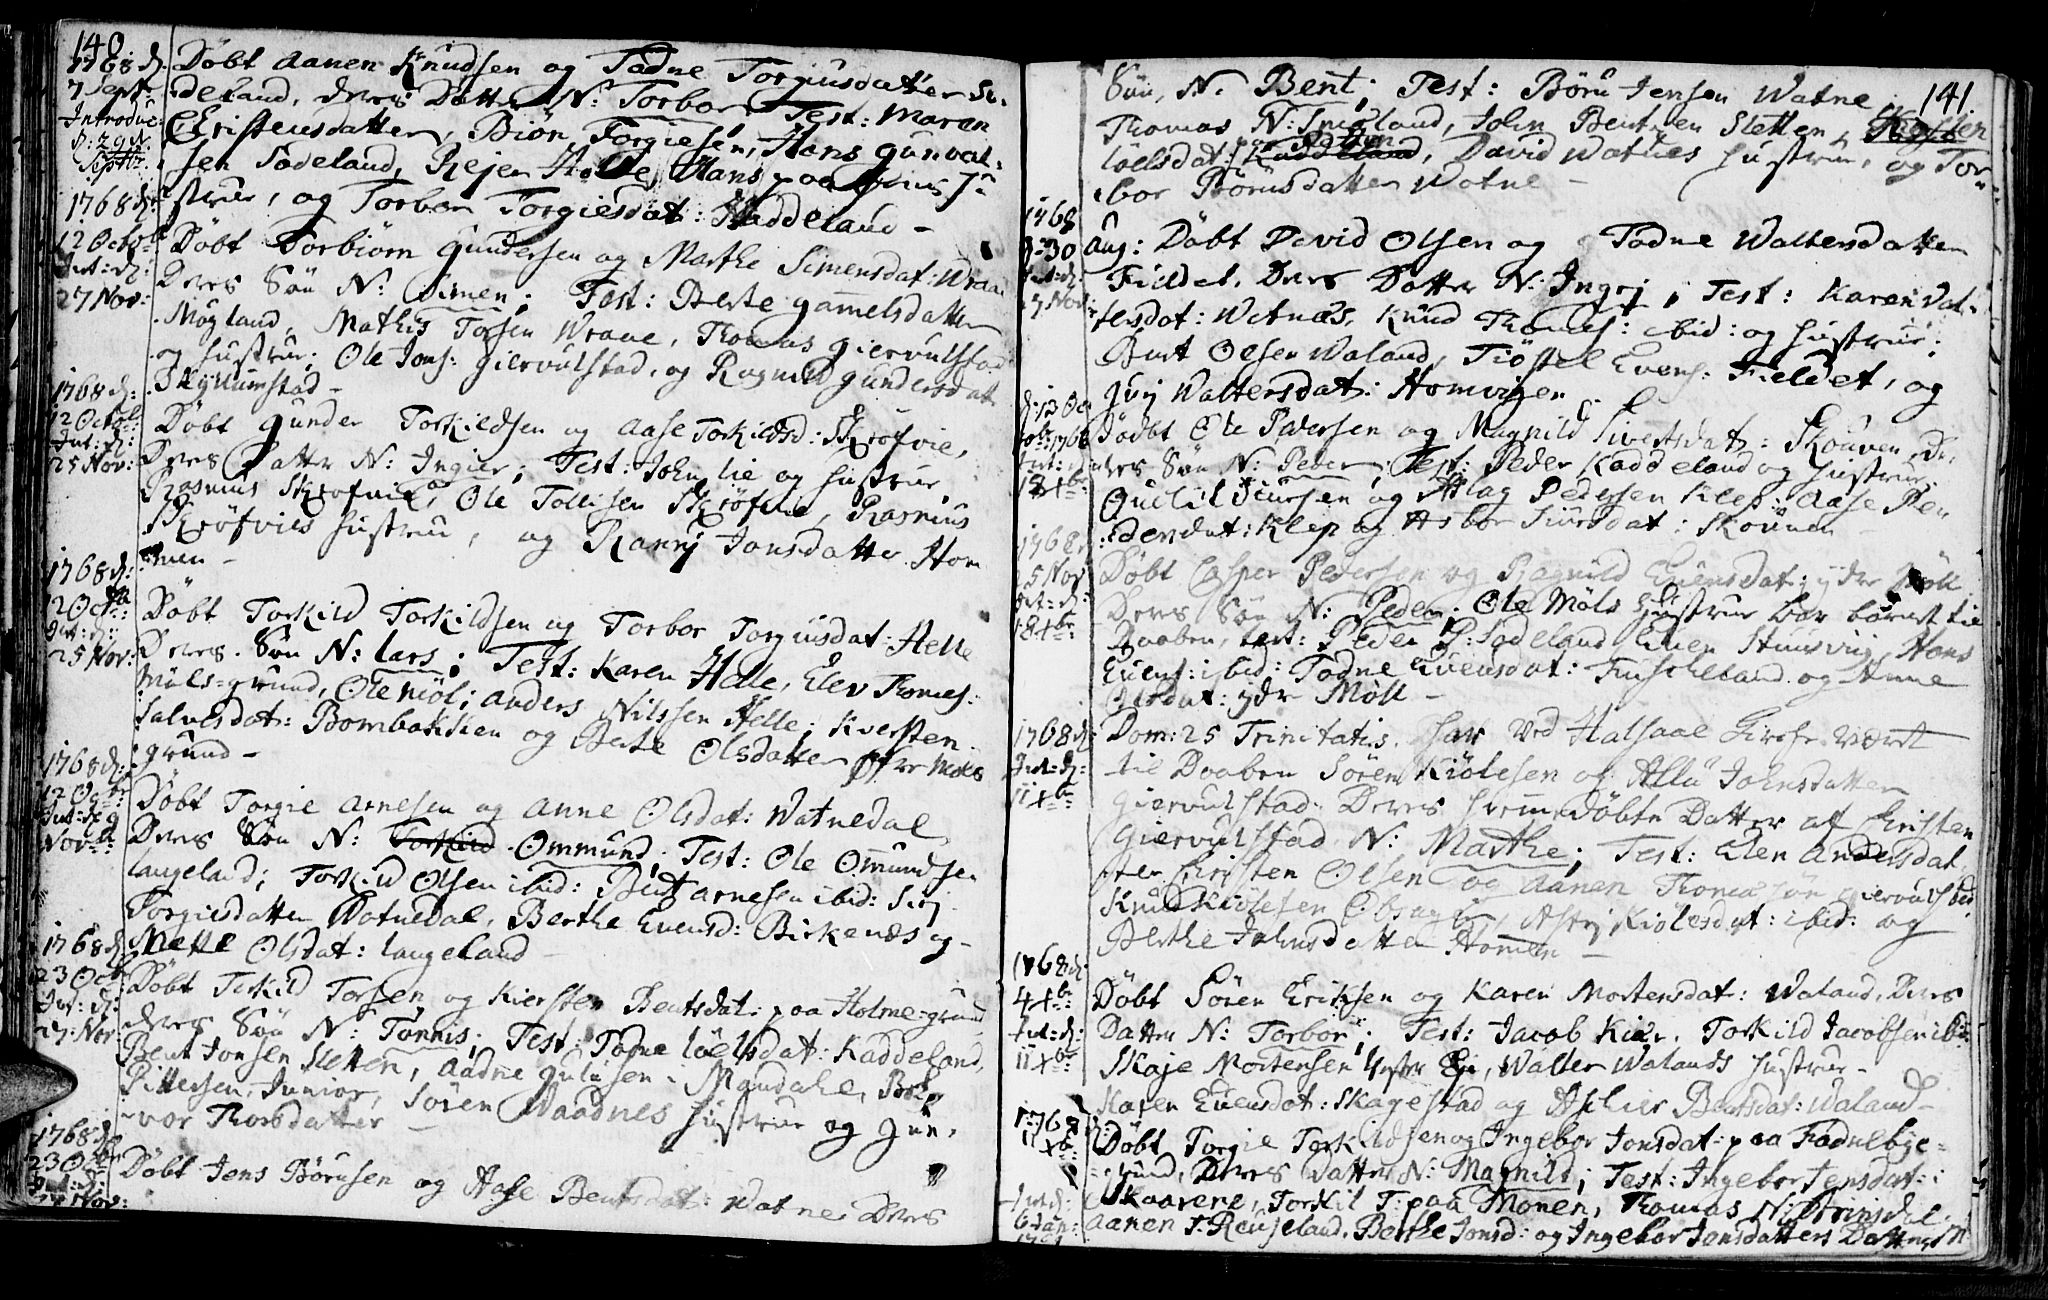 140
1768 d:
7 Sept:
Introduc:
d: 29de
Septbr:
Døbt Aanen Knudsen og Todne Torgiusdatter So:
deland, deres Datter N: Torbor, Test: Maren
Christensdatter, Biøn Torgiesen, Hans Gunval:
sen Sodeland, Rejer Helle, Hans paa Hu:
strue, og Torbor Torgiesdat: Haddeland -
1768 d:
12 Octob:
Int: d:
27 Nov:
Døbt Torbiørn Gundersen og Marthe Simensdat: Wraa
Deres Søn N: Simen; Test: Berte Gamelsdatter
Møgland, Mathis Torsen Wraae, Thomas Giervulstad
og Hustrue; Ole Jons: Giervulstad, og Ragnild Gundersdat:
Skyllumstad -
1768 d:
12 Octob:
Int: d:
25 Nov:
Døbt Gunder Torkildsen og Aase Torkildsd: Skrøfvie,
Deres Datter N: Ingier; Test: John Lie og Hustrue,
Rasmus Skrøfvie, Ole Tollisen Skrøfvie, Rasmus
Skrøfvies Hustrue, og Ranni Jonsdatter Hom
men -
1768 d:
12 Oct:
Int: d:
25 Nov:
Døbt Torkild Torkildsen og Torbor Torgiusdat: Helle
Deres Søn N: Lars; Test: Karen Helle, Elev Thomes:
Møls=grund, Ole Møl; Anders Nilssen Helle; Kiersten
Salvesdat: Bombakskien og Berte Olsdatter yttre Møls
grund -
1768 d:
12 Octbr:
Int: d: 9
Novbr:
Døbt Torgie Arnesen og Anne Olsdat: Watnedal
Deres Søn N: Torkild Ommund; Test: Ole Omundsen
Langeland; Torkild Olsen ibid: Bent Arnesen ibid: Siri
Torgiesdatter Watnedal, Berthe Evensd: Birkenæs og
Mette Olsdat: Langeland
1768 d:
23 Octb:
Int: d:
27 Nov:
Døbt Terkild Torsen og Kiersten Bentsdat: paa Holme=grund
deres Søn N: Tønnis; Test: Todne Löelsdat: Kaddeland,
Bent Jonsen Sletten, Aadne Gulusen i Mandahl,
Pittersen Junior, Søren Waadnes Hustrue og Gun,
vor Thorsdatter -
1768 d:
23 Octbr:
Int: d:
Nov:
Døbt Jens Børusen og Aase Bentsdat: Watne, Deres
141
Søn, N. Bent; Test: Børu Jensen Watne
Thomas N: Trigland, John Bentsen Sletten, Kiersten
Löelsdat: paa Sletten Kaddeland, David Watnes Hustrue, og Tor:
bor Børusdatter Watne -
1768
d: 30
Int: d:
17 Nov:
Aug: Døbt David Olsen og Todne Waltersdatter
Fieldet, Deres Datter N: Ingrj; Test: Karen Val:
tersdat: Watnæs, Knud Thomes: ibid: og Hustrue;
Bent Olsen Waland, Tiøstel Evens: Fieldet, og
Gurj Waltersdat: Homvigen.
d: 13 Oc
tobr 1768
Int: d:
18 Xbr:
Dødbt Ole Pedersen og Magnild Sivertsdat: Skouen, De:
res Søn N: Peder; Test: Peder Kaddeland og Hustrue;
Siursen og Aslag Pedersen Klep: Aase Pe:
dersdat: Klep og Asbor Siursdat: Skouen -
1768 d:
25 Nov
Int: d:
18 Xbr:
Døbt Casper Pedersen og Ragnild Evensdat: ydre Möll
Deres Søn N: Peder. Ole Möls Hustrue bar barnet til
Daaben, test: Peder P: Sodeland, Even Stuusvig, Hans
Evens: ibid: Todne Evensdat: Fuskeland og Anne
Olsdat: ydre Møll -
1768 d:
Int: d:
11 Xbr
Dom: 25 Trinitatis. Har ved Halsaae Kirche været
til Daaben Søren Kiölesen og Alla Johnsdatter
Giervulstad. Deres hiemmedøbte Datter af Christen
Giervulstad N: Marthe; Test: Elen Andersdat
ter Christen Olsen og Aanen Thomæsøn Giervulstad,
Knud Kiölesen Obsager, Astrj Kiölesdat: ibid: og
Berthe Johnsdatter Homen -
1768 d:
4 Xbr:
Int: d:
11 Xbr
Døbt Søren Eriksen og Karen Mortensdat: Waland, Deres
Datter N: Torbor; Test: Jacob Kier, Torkild Jacobsen ibid:
Skaje Mortensen Yster Eje, Walter Walands Hustrue -
Karen Evensdat: Skagestad og Aschier Bentsdat: Waland -
1768 d:
11 Xbr:
Int: d:
6 Jan:
Døbt Torgie Torkildsen og Ingebor Jonsdat: paa Fodnebye=
grund, Deres Datter N: Magnild; Test: Ingebor Jensdat: i
Skaarene, Torkil T: paa Monen, Thomas N:
Aanen T: Reuseland, Berthe Jonsd: og Ingebor Jonsdatters Datter M